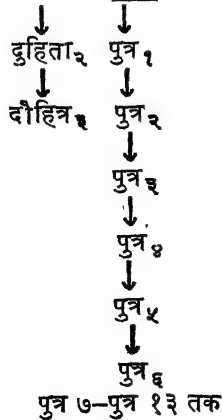 दुहिता२ पुत्र१
दौहित्र३ पुत्र२
पुत्र३
पुत्र४
पुत्र५
पुत्र६
पुत्र ७–पुत्र १३ तक